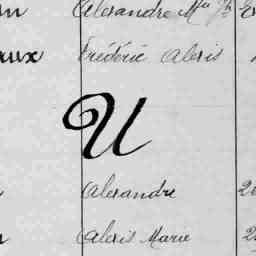 Alexandre Mie Jh
aux Frédéric Alexis
U
Alexandre
Alexis Marie